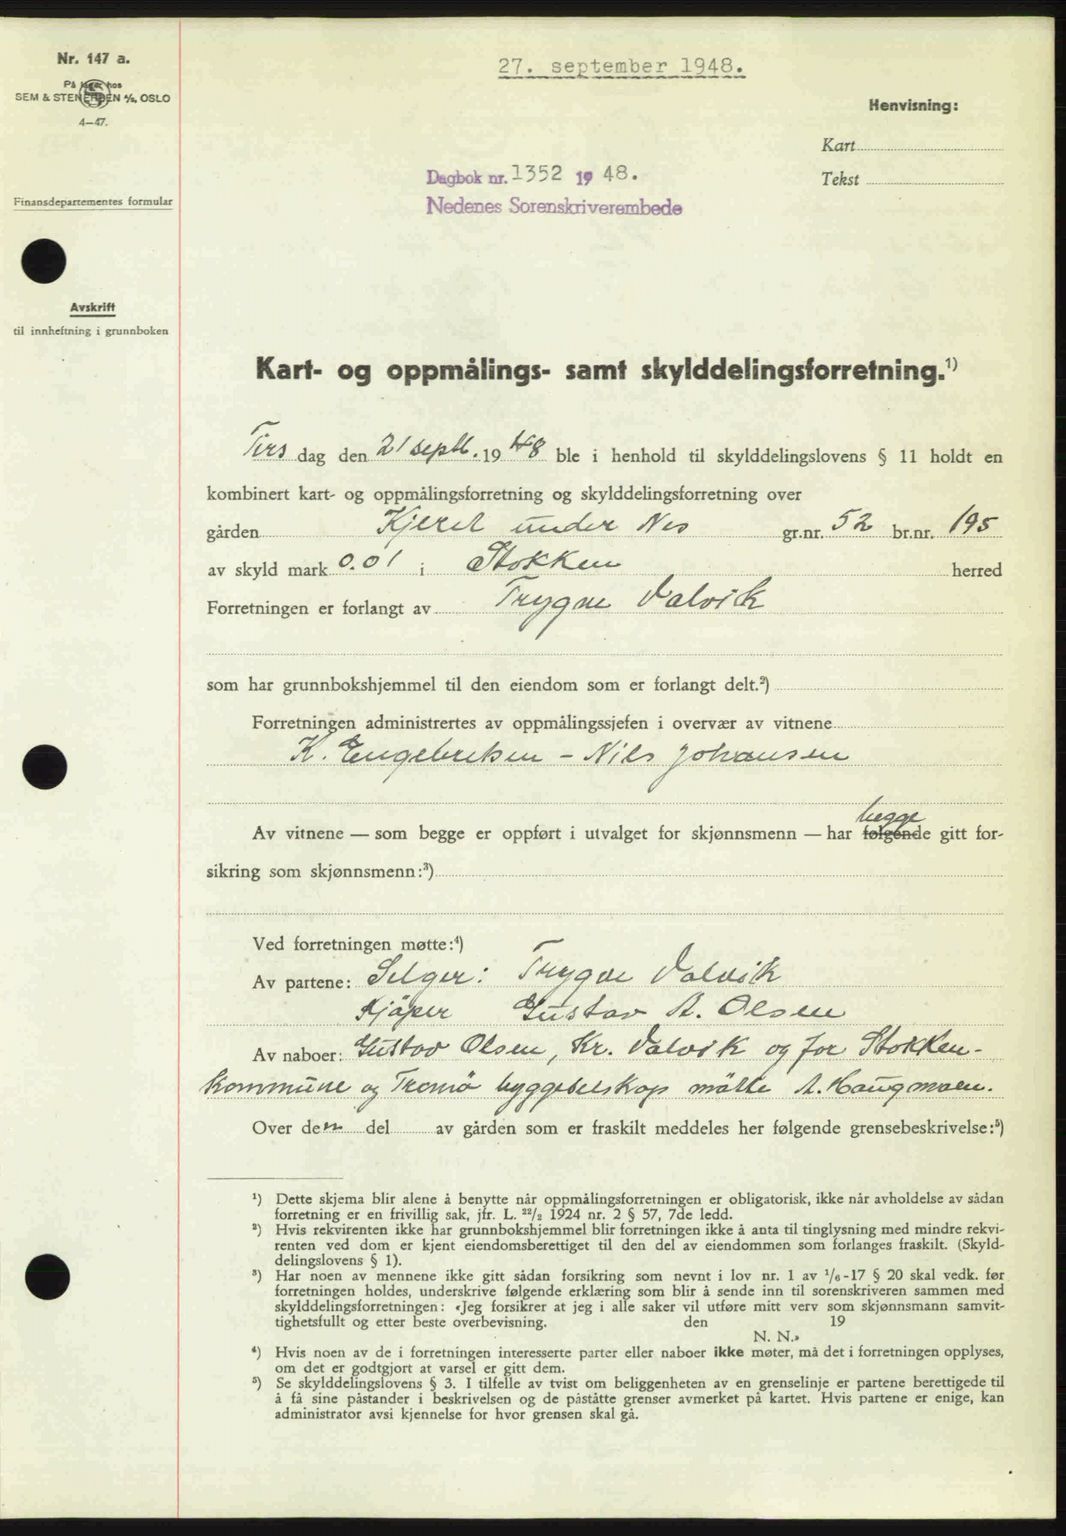 Nr. 147 a.
På lager hos
SEM & STENERSEN A/S, OSLO
4-47.
Finansdepartementes formular
Avskrift
til innheftning i grunnboken
27. september 1948.
Henvisning:
Kart
Tekst
Dagbok nr. 1352 1948.
Nedenes Sorenskriverembede
Kart- og oppmålings- samt skylddelingsforretning.¹)
Tirs dag den 21 sept. 1948 ble i henhold til skylddelingslovens § 11 holdt en
kombinert kart- og oppmålingsforretning og skylddelingsforretning over
gården Kjeret under Nes gr.nr. 52 br.nr. 195
av skyld mark 0.01 i Stokken herred
Forretningen er forlangt av Trygve Valvik
som har grunnbokshjemmel til den eiendom som er forlangt delt.²)
Forretningen administrertes av oppmålingssjefen i overvær av vitnene
K. Engebretsen - Nils Johansen
begge
Av vitnene — som begge er oppført i utvalget for skjønnsmenn — har følgende gitt for-
sikring som skjønnsmenn:³)
Ved forretningen møtte:⁴)
Av partene: Selger: Trygve Valvik
Kjöper Gustav A. Olsen
Av naboer: Gustav Olsen, Kr. Valvik og for Stokken-
kommune og Tromö byggeselskap mötte A. Haugmoen.
Over den del av gården som er fraskilt meddeles her følgende grensebeskrivelse:⁵)
¹) Dette skjema blir alene å benytte når oppmålingsforretningen er obligatorisk, ikke når avholdelse av sådan
forretning er en frivillig sak, jfr. L. ²²/₂ 1924 nr. 2 § 57, 7de ledd.
²) Hvis rekvirenten ikke har grunnbokshjemmel blir forretningen ikke å anta til tinglysning med mindre rekvi-
renten ved dom er kjent eiendomsberettiget til den del av eiendommen som forlanges fraskilt. (Skyld-
delingslovens § 1).
³) Har noen av mennene ikke gitt sådan forsikring som nevnt i lov nr. 1 av ¹/₆-17 § 20 skal vedk. før
forretningen holdes, underskrive følgende erklæring som blir å sende inn til sorenskriveren sammen med
skylddelingsforretningen: «Jeg forsikrer at jeg i alle saker vil utføre mitt verv som skjønnsmann samvit-
tighetsfullt og etter beste overbevisning. den 19
N. N.»
⁴) Hvis noen av de i forretningen interesserte parter eller naboer ikke møter, må det i forretningen opplyses,
om det er godtgjort at varsel er gitt dem.
⁵) Se skylddelingslovens § 3. I tilfelle av tvist om beliggenheten av en grenselinje er partene berettigede til
å få sine påstander i beskrivelsen og de påståtte grenser avmerket på kartet. Hvis partene er enige, kan
administrator avsi kjennelse for hvor grensen skal gå.